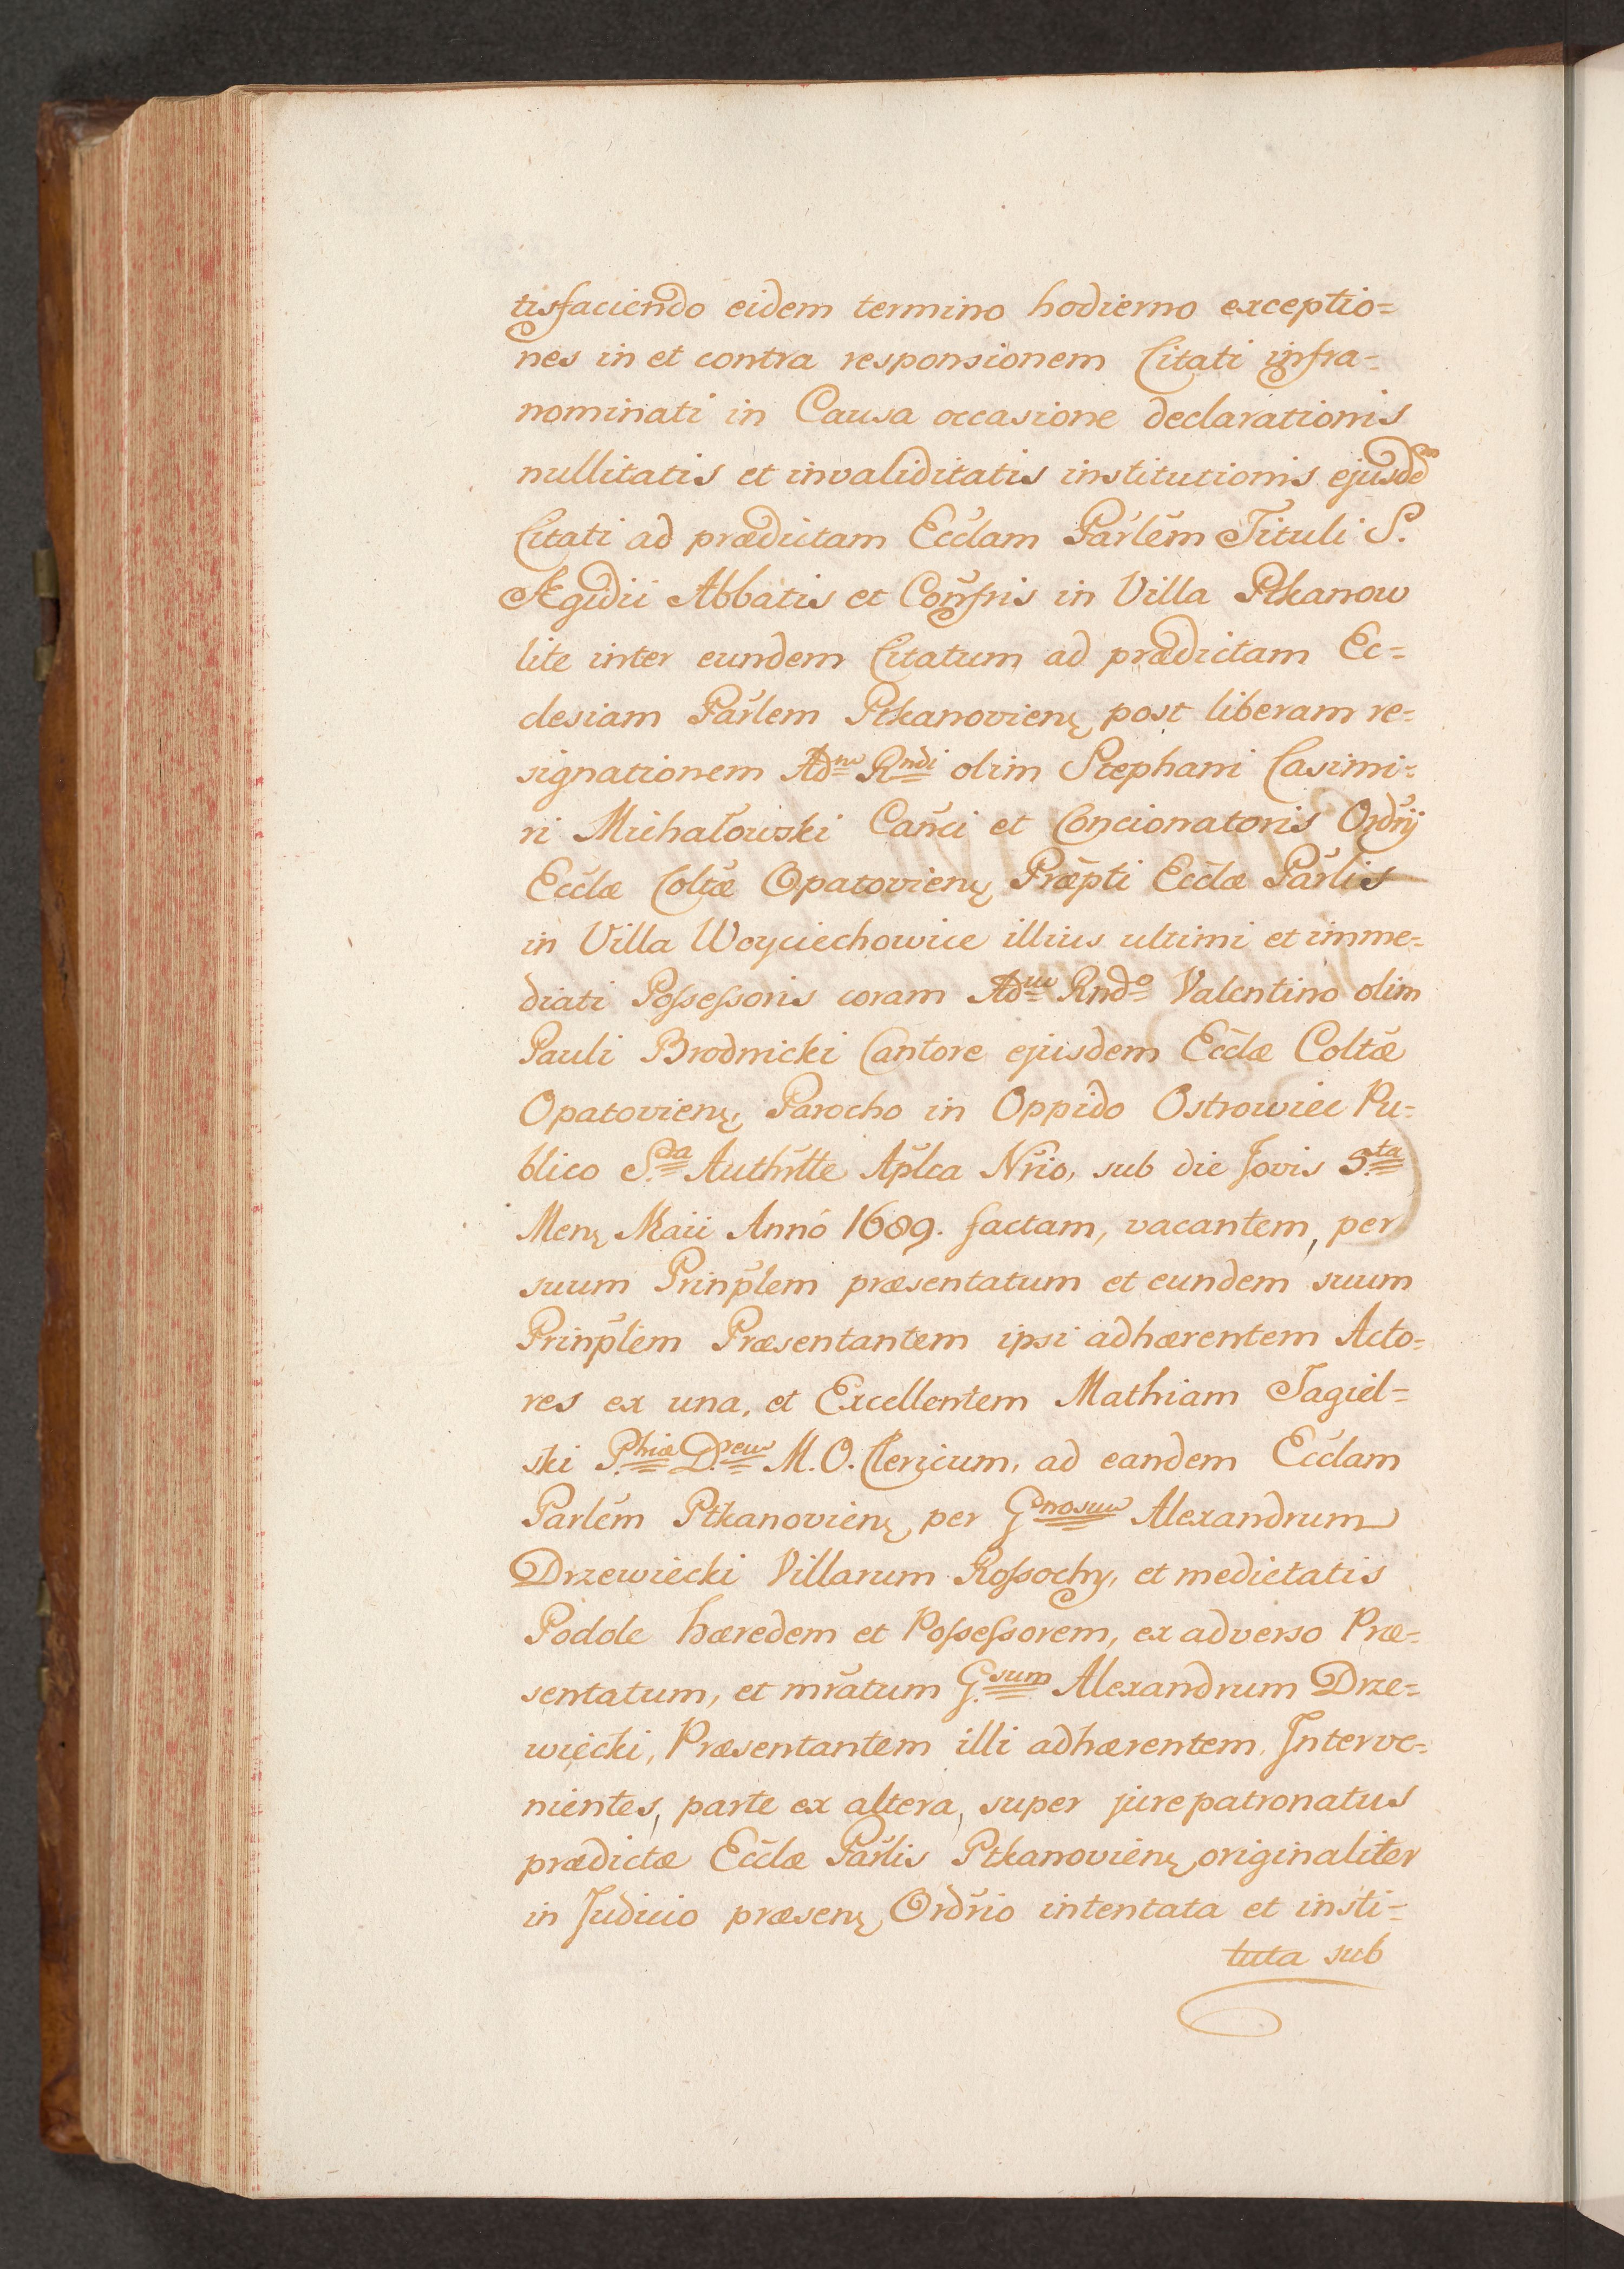 tisfaciendo eidem termino hodierno exceptio=
nes in et contra responsionem Citati infra=
nominati in Causa occasione declarationis
nullitatis et invaliditatis institutionis ejusdē
Citati ad prædictam Ecclam Parlēm Tituli S.
Ægidii Abbatis et Confris in Villa Ptkanow
lite inter eundem Citatum ad prædictam Ec=
clesiam Parlem Ptkanovienę post liberam re=
signationem Adm Rndi olim Stephani Casimi=
ri Michałowski Canci et Concionatoris Ordrij
Ecclæ Coltæ Opatovienę Præpti Ecclæ Parlis
in Villa Woyciechowice illius ultimi et imme=
diati Poſseſsoris coram Adm Rndo Valentino olim
Pauli Brodnicki Cantore ejusdem Ecclæ Coltæ
Opatovienę, Parocho in Oppido Ostrowiec Pu=
blico Sra Authrtte Aplca Nrio, sub die Jovis 5ta
Menę Maii Anno 1689. factam, vacantem, per
suum Prinplem præsentatum et eundem suum
Prinplem Præsentantem ipsi adhærentem Acto=
res ex una, et Excellentem Mathiam Jagiel=
ski P.hiæ D.rem M.O. Clericum, ad eandem Ecclam
Parlem Ptkanovienę per Gnosum Alexandrum
Drzewiecki Villarum Roſsochy, et medietatis
Podole hæredem et Poſseſsorem, ex adverso Præ=
sentatum, et mratum G.sum Alexandrum Drze=
wiecki, Præsentantem illi adhærentem. Interve=
nientes, parte ex altera, super jurepatronatus
prædictæ Ecclæ Parlis Ptkanovienę originaliter
in Judicio præsenę Ordrio intentata et insti=
tuta sub